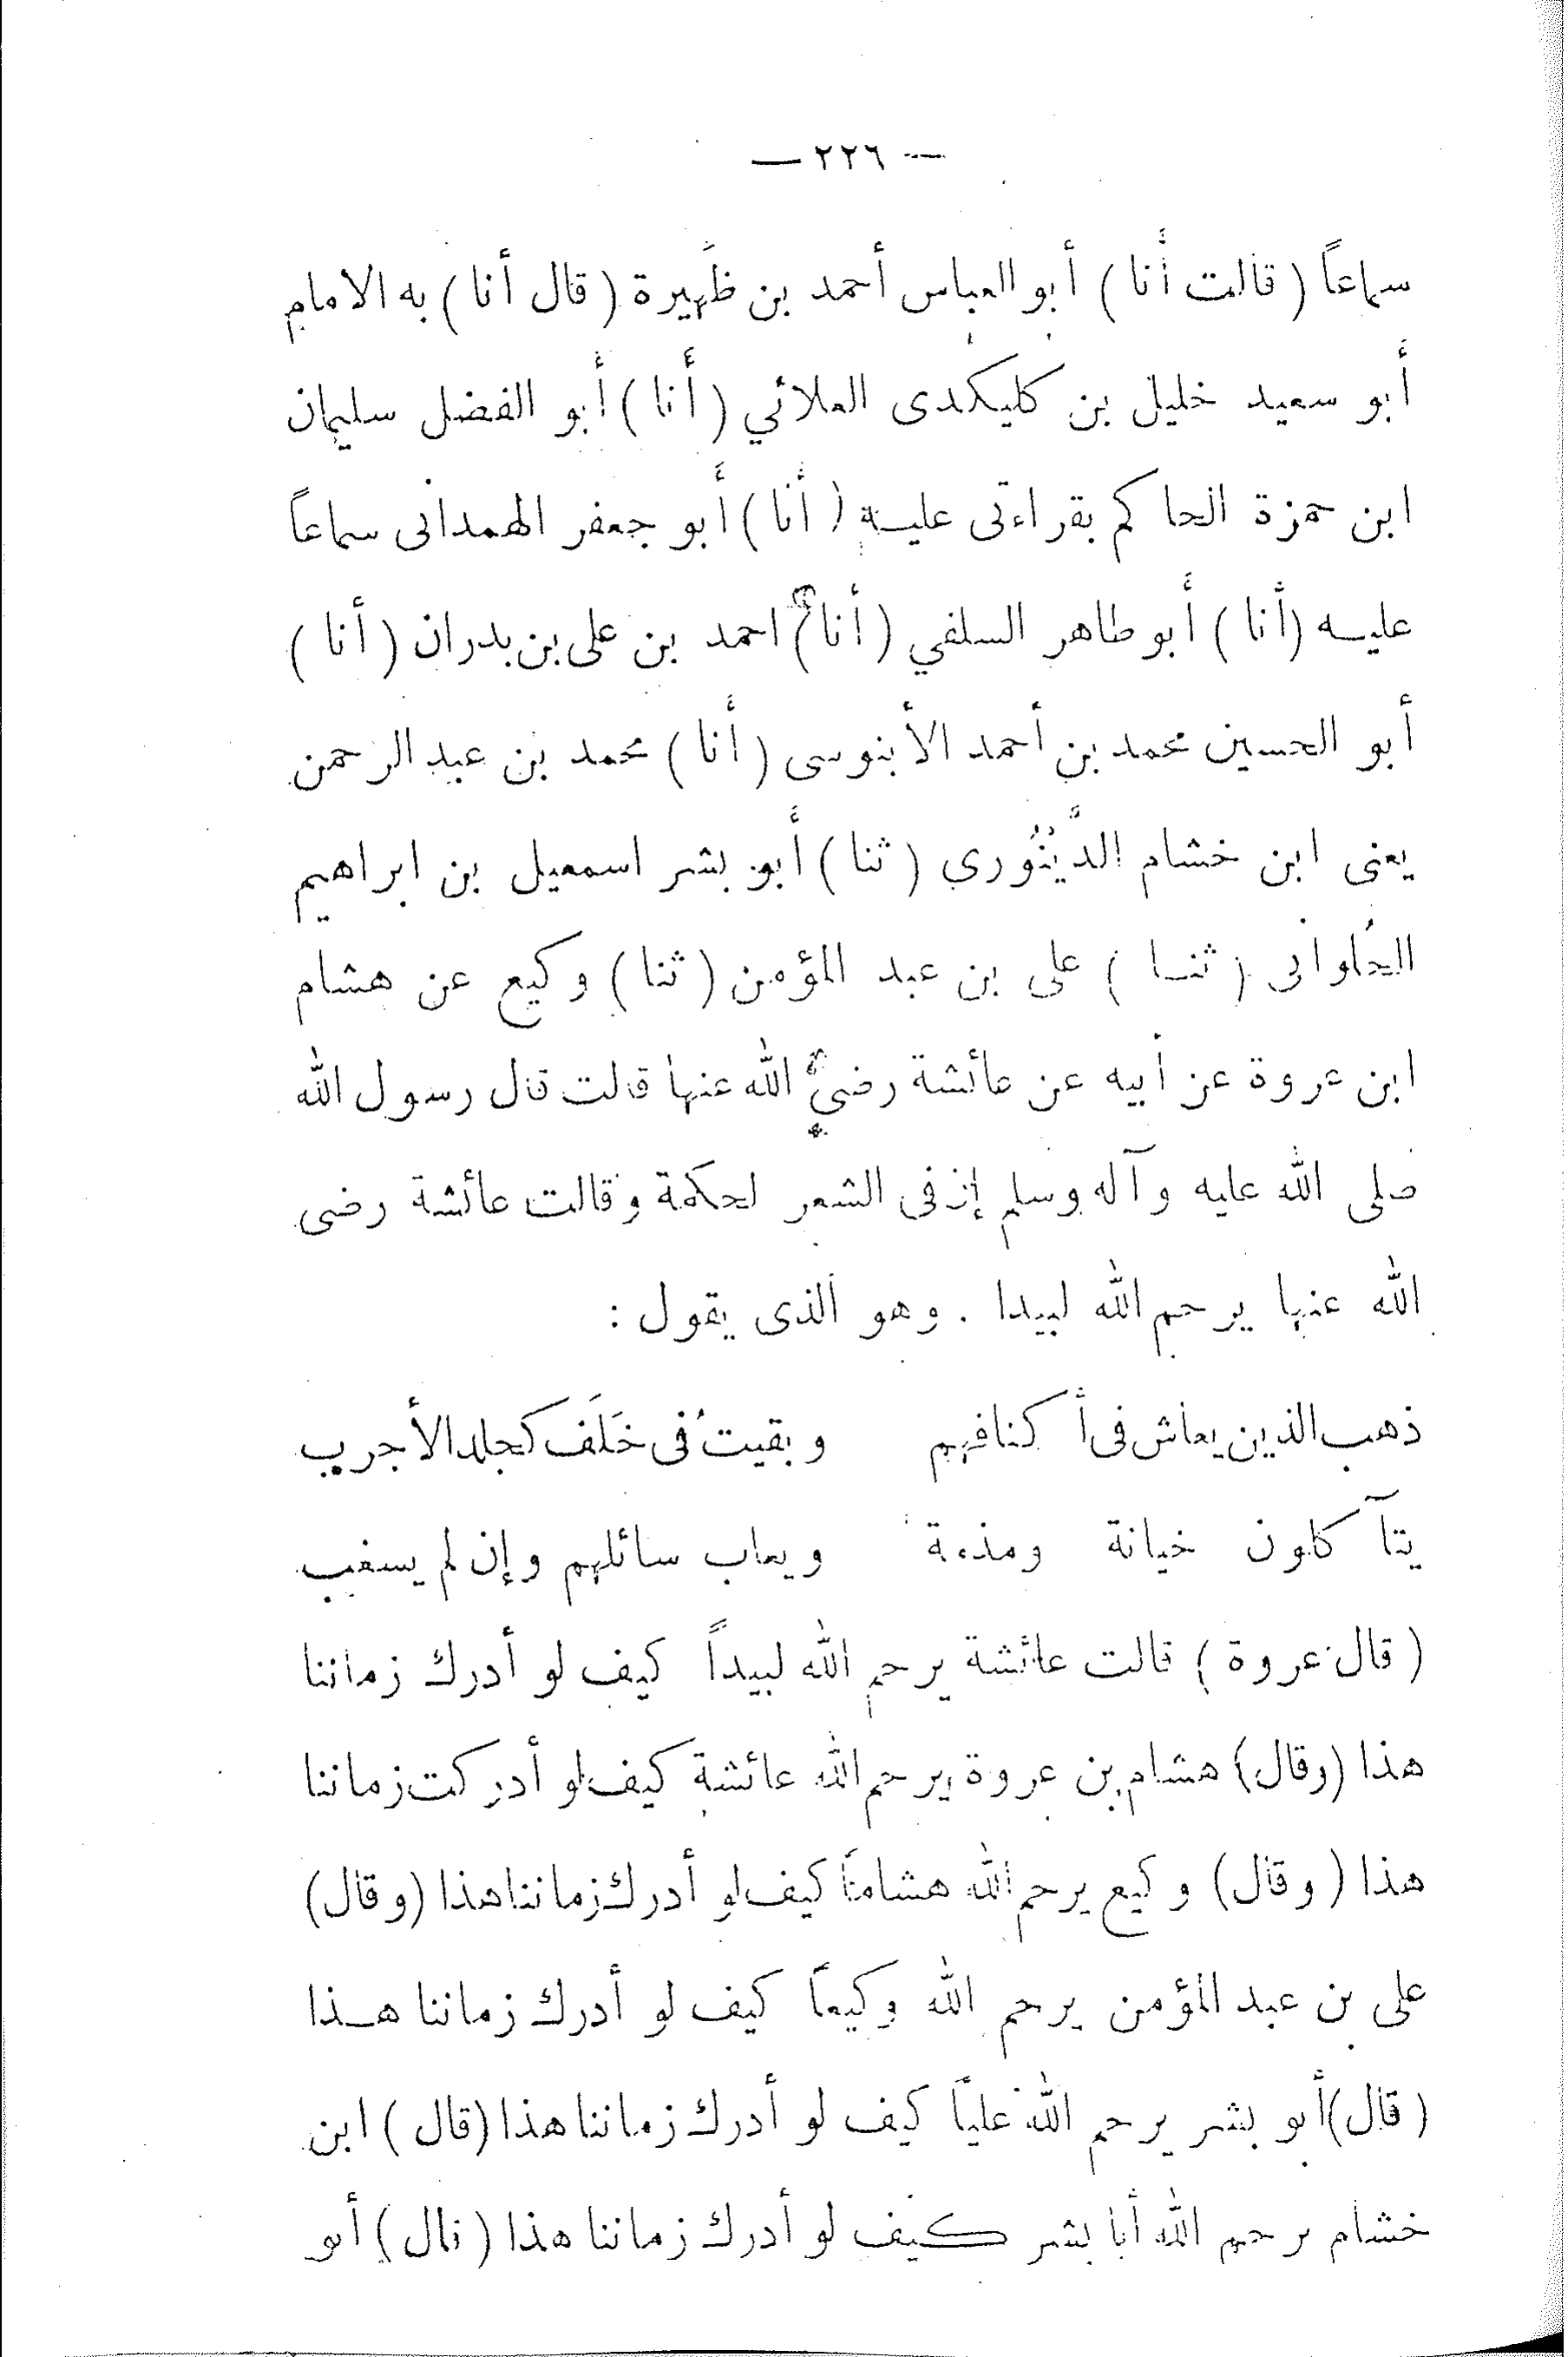 — ٢٢٦ —
سماعاً ( قالت أنا ) أبو العباس أحمد بن ظَهيرة ( قال أنا ) به الامام
أبو سعيد خليل بن كليكدى العلائي ( أنا ) أبو الفضل سليمان
ابن حمزة الحاكم بقراءتى عليــه ( أنا ) أبو جعفر الهمدانى سماعاً
عليــه ( أنا ) أبو طاهر السلفي ( أنا ) احمد بن على بن بدران ( أنا )
أبو الحسين محمد بن أحمد الأبنوسى ( أنا ) محمد بن عبد الرحمن
يعنى ابن خشام الدَّيْنُوري ( ثنا ) أبو بشر اسمعيل بن ابراهيم
الحُلوانى ( ثنــا ) على بن عبد المؤمن ( ثنا ) وكيع عن هشام
ابن عروة عن أبيه عن عائشة رضي الله عنها قالت قال رسول الله
صلى الله عليه وآله وسلم إن فى الشعر لحكمة وقالت عائشة رضى
الله عنها يرحم الله لبيدا . وهو الذى يقول :
ذهب الذين يعاش فى أكنافهم وبقيتُ فى خَلَف كجلد الأجرب
يتآكلون خيانة ومذمة ويعاب سائلهم وإن لم يسغب
( قال عروة ) قالت عائشة يرحم الله لبيداً كيف لو أدرك زماننا
هذا ( وقال ) هشام بن عروة يرحم الله عائشة كيف لو أدركت زماننا
هذا ( وقال ) وكيع يرحم الله هشاماً كيف لو أدرك زماننا هذا ( وقال )
على بن عبد المؤمن يرحم الله وكيعاً كيف لو أدرك زماننا هــذا
( قال ) أبو بشر يرحم الله علياً كيف لو أدرك زماننا هذا ( قال ) ابن
خشام يرحم الله أبا بشر كيف لو أدرك زماننا هذا ( قال ) أبو